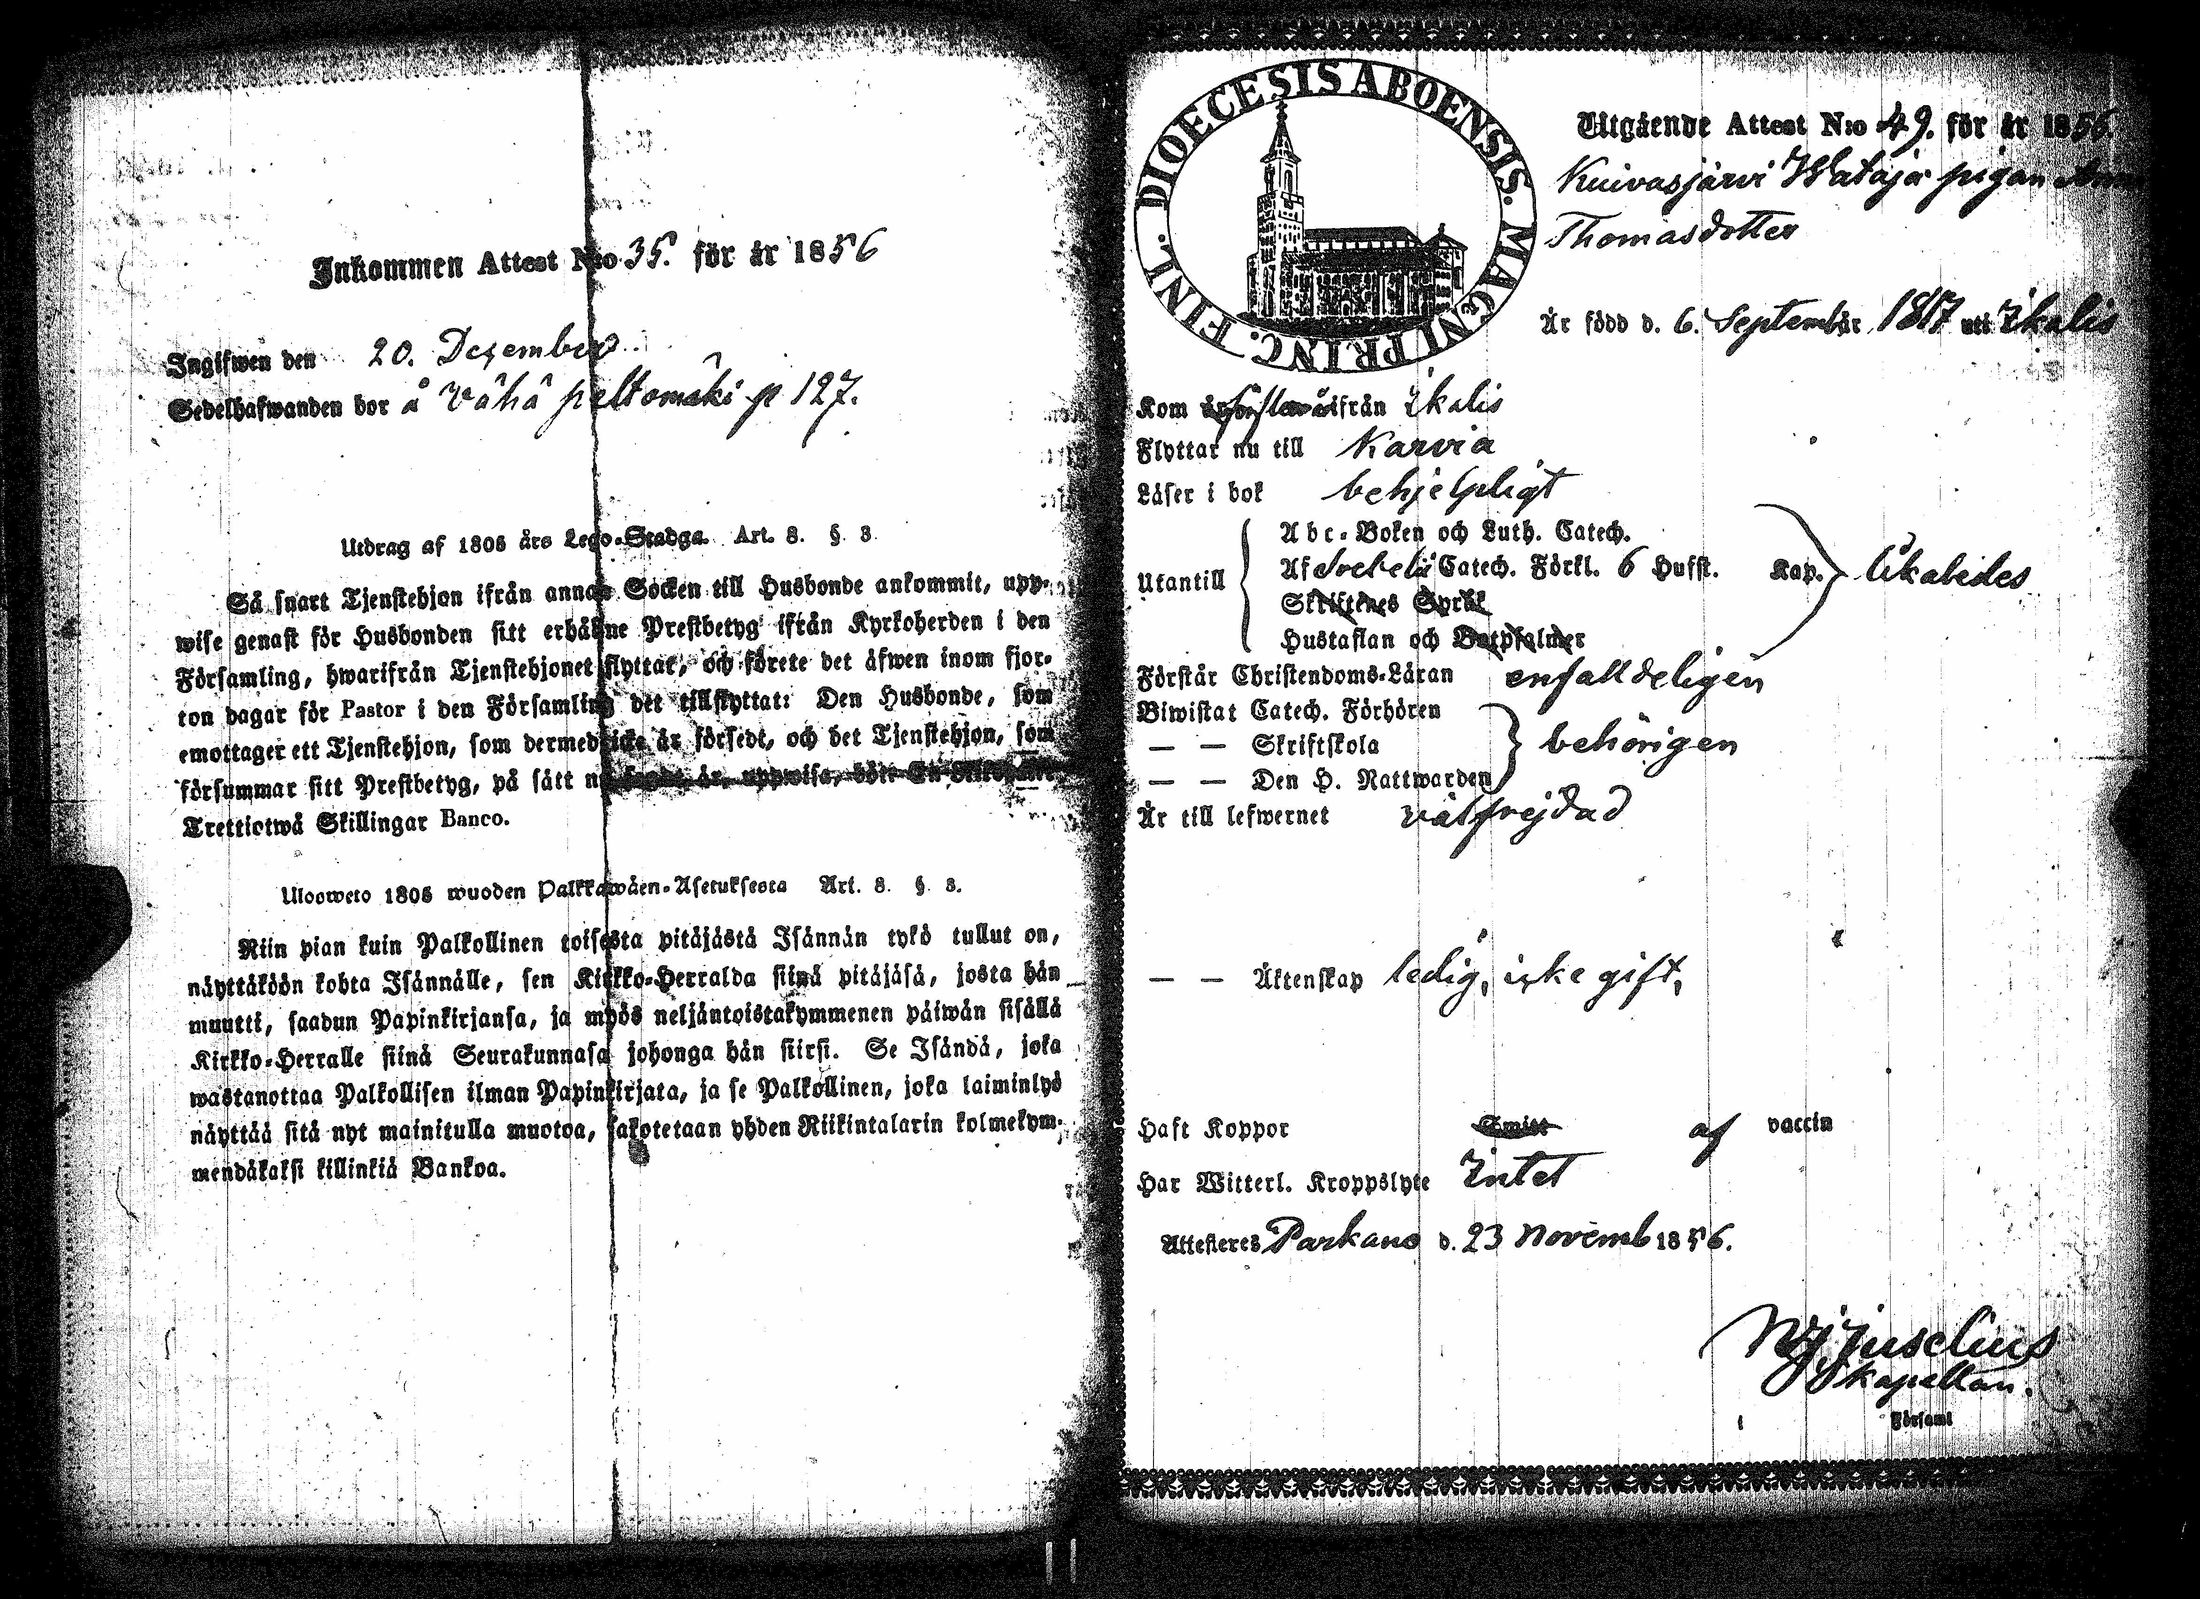 Inkommen Attest N:o 35. för år 1856
Ingifwen den 20. Dezember
Sedelhafwanden bor å Vähä peltomäki p 127.
Utdrag af 1805 års Lego-Stadga. Art. 8. § 3.
Så snart Tjenstehjon ifrån annan Socken till Husbonde ankommit, upp-
wise genast för Husbonden sitt erhållne Prestbetyg ifrån Kyrkoherden i den
Församling, hwarifrån Tjenstehjonet flyttat, och förete det äfwen inom fjor-
ton dagar för Pastor i den Församling det tillflyttat: Den Husbonde, som
emottager ett Tjenstehjon, som dermed icke är försedt, och det Tjenstehjon, som
försummar sitt Prestbetyg, på sätt nu sagdt är, uppwisa, böte En Riksdaler
Trettiotwå Skillingar Banco.
Ulosweto 1805 wuoden Palkkawäen-Asetuksesta Art. 8. § 3.
Niin pian kuin Palkollinen toisesta pitäjästä Isännän tykö tullut on,
näyttäköön kohta Isännälle, sen Kirkko-Herralda siinä pitäjäsä, josta hän
muutti, saadun Papinkirjansa, ja myös neljäntoistakymmenen päiwän sisällä
Kirkko-Herralle siinä Seurakunnasa johonga hän siirsi. Se Isändä, joka
wastanottaa Palkollisen ilman Papinkirjata, ja se Palkollinen, joka laiminlyö
näyttää sitä nyt mainitulla muotoa, sakotetaan yhden Riikintalarin kolmekym-
mendäkaksi killinkiä Bankoa.
DIOECESIS ABOENSIS. MAGNI PRINC. FINL.
Utgående Attest N:o 49. för år 1856.
Kuivasjärvi Wataja pigan Anna
Thomasdotter
Är född d. 6. Septembär 1817 uti Ikalis
Kom ifrån Ikalis
Flyttar nu till Karvia
Läser i bok behjelpligt
Utantill
Abc-Boken och Luth. Catech.
Af Svebelii Catech. Förkl. 6 Hufst. Kap. Ikalides
Skriftenes Språk
Hustaflan och Botpsalmer
Förstår Christendoms-Läran enfalldeligen
Biwistat Catech. Förhören
— — Skriftskola behörigen
— — Den H. Nattwarden
Är till lefwernet välfrejdad
— — Äktenskap ledig, icke gift,
Haft Koppor Smitt af vaccin
Har Witterl. Kroppslyte Intet
Attesteres Parkano d. 23 Novemb 1856.
Juselius
kapellan.
Församl